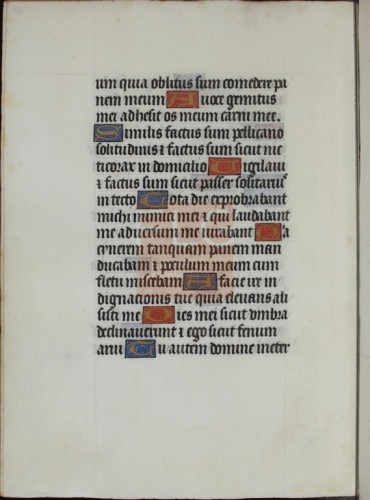 um quia oblitus sum comedere pa
nem meum A voce gemitus
mei adhesit os meum carni mee.
Similis factus sum pellicano
solitudinis ⁊ factus sum sicut nic
ticorax in domicilio Uigilaui
⁊ factus sum sicut passer solitariꝰ
in tecto Tota die exprobrabant
michi inimici mei ⁊ qui laudabant
me aduersum me iurabant Q'a
cinerem tanquam panem man
ducabam ⁊ poculum meum cum
fletu miscebam A facie ire in
dignacionis tue quia eleuans ali
sisti me Dies mei sicut vmbra
declinauerunt ⁊ ego sicut fenum
arui Tu autem domine ineter